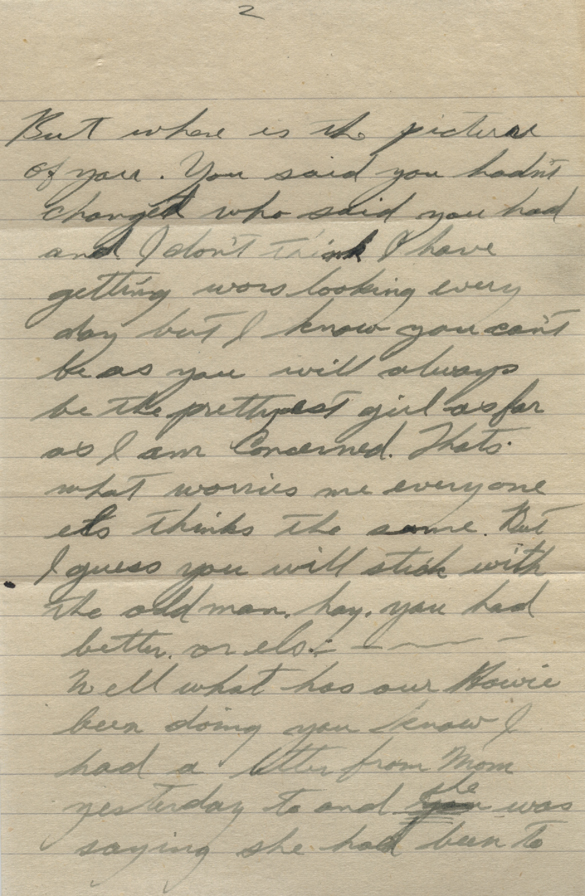 2
But where is the picture
of your. You said you hadn't
changed who said you had
and I don't think I have
getting wors looking every
day but I know you can't
be as you will always
be the prettyest girl as far
as I am Concerned. Thats
what worries me everyone
els thinks the same. But
I guess you will stick with
the old man. hay. you had
better. or els: — — — —
Well what has our Howie
been doing you know I
had a letter from Mom
yesterday to and she was
saying she had been to